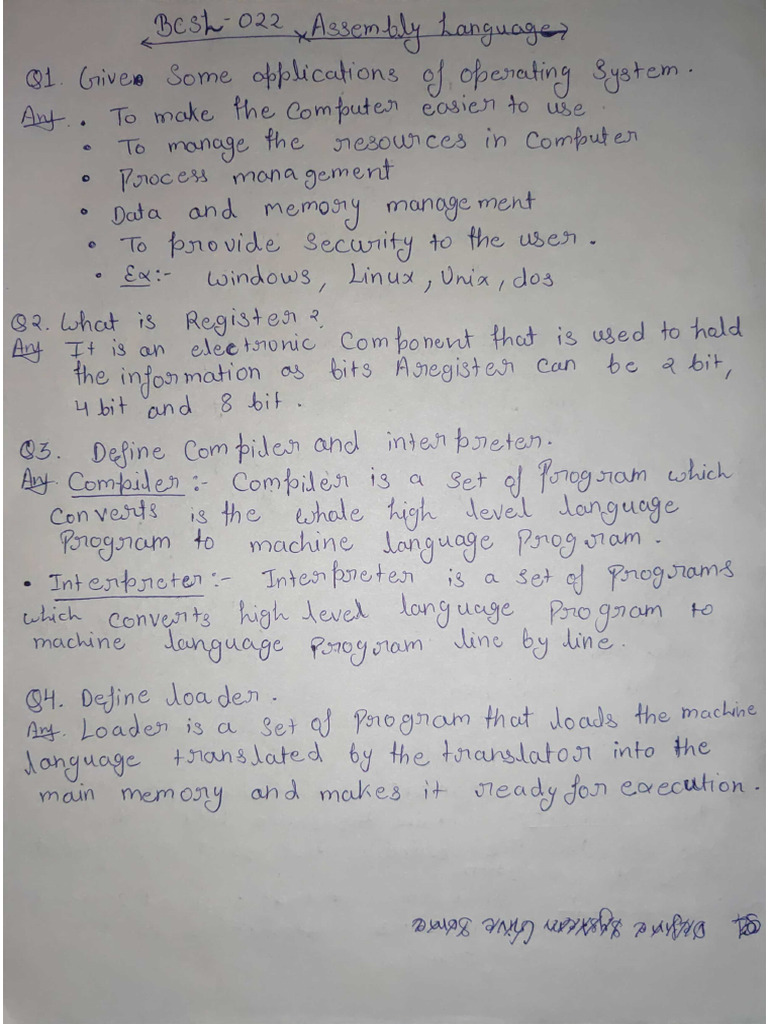 BCSL-022 Assembly Language
Q1. Give Some applications of operating System.
Ans. • To make the Computer easier to use
• To manage the resources in Computer
• Process management
• Data and memory management
• To provide Security to the user.
• Ex:- Windows, Linux, Unix, dos
Q2. What is Register?
Ans It is an electronic Component that is used to hold
the information as bits A register can be 2 bit,
4 bit and 8 bit.
Q3. Define Compiler and interpreter.
Ans. Compiler:- Compiler is a set of Program which
Converts is the whole high level language
Program to machine language Program.
• Interpreter:- Interpreter is a set of Programs
which converts high level language program to
machine language program line by line.
Q4. Define loader.
Ans. Loader is a set of Program that loads the machine
language translated by the translator into the
main memory and makes it ready for execution.